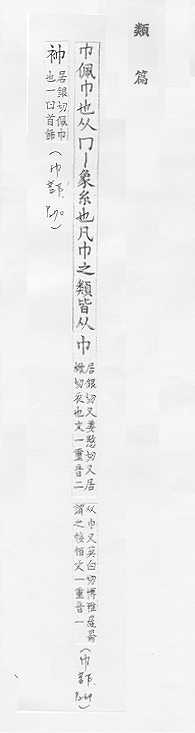 類篇
巾佩巾也从冂丨象糸也凡巾之類皆从巾
居銀切又姜愍切又居
切衣也文一重音二
从巾又莫白切博雅
謂之 帕文一重音一
(巾部
居銀切佩巾
也一曰首飾
(巾部